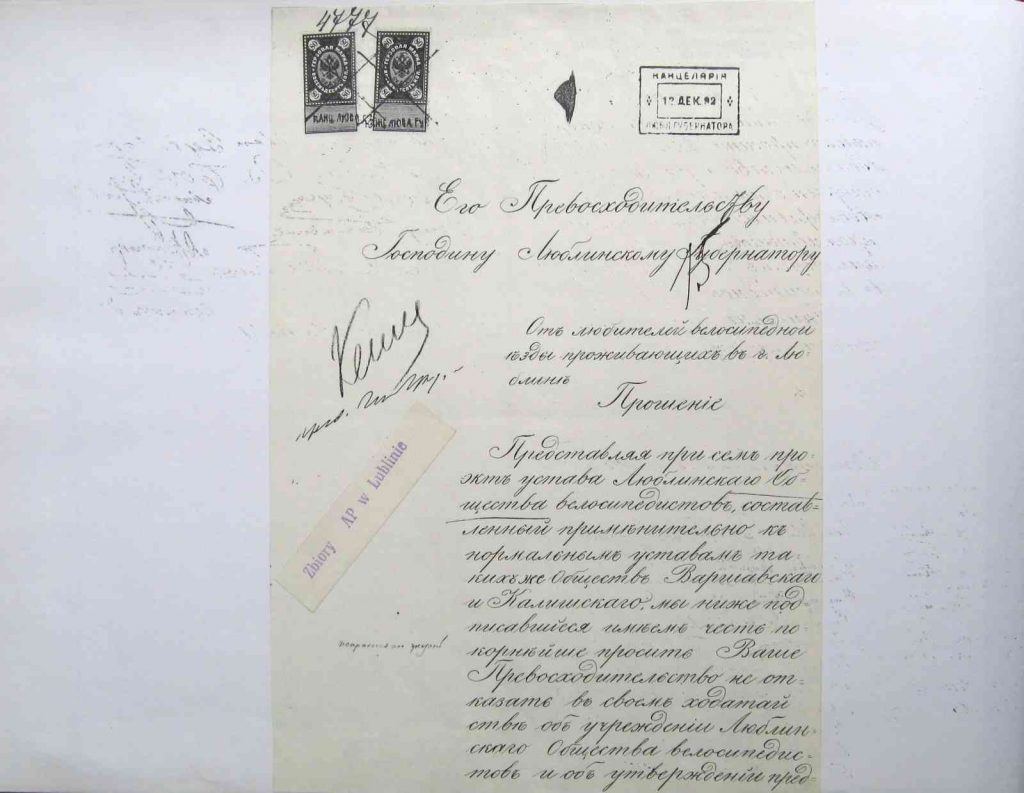 4777
КАНЦ. ЛЮБ.
КАНЦ. ЛЮБЛ. ГУ
КАНЦЕЛЯРІЯ
12 ДЕК. 92
ЛЮБЛ. ГУБЕРНАТОРА
Его Превосходительству
Господину Люблинскому Губернатору
Отъ любителей велосипедной
ѣзды проживающихъ въ г. Лю-
блинѣ
Прошеніе
Представляя при семъ про-
эктъ устава Люблинскаго Об-
щества велосипедистовъ, состав-
ленный примѣнительно къ
нормальнымъ уставамъ та-
кихъ же Обществъ Варшавскаго
и Калишскаго, мы ниже под-
писавшіеся имѣемъ честь по-
корнѣйше просить Ваше
Превосходительство не от-
казать въ своемъ ходатай
ствѣ объ учрежденіи Люблин-
скаго Общества велосипедис-
товъ и объ утвержденіи пред-
Zbiory AP w Lublinie